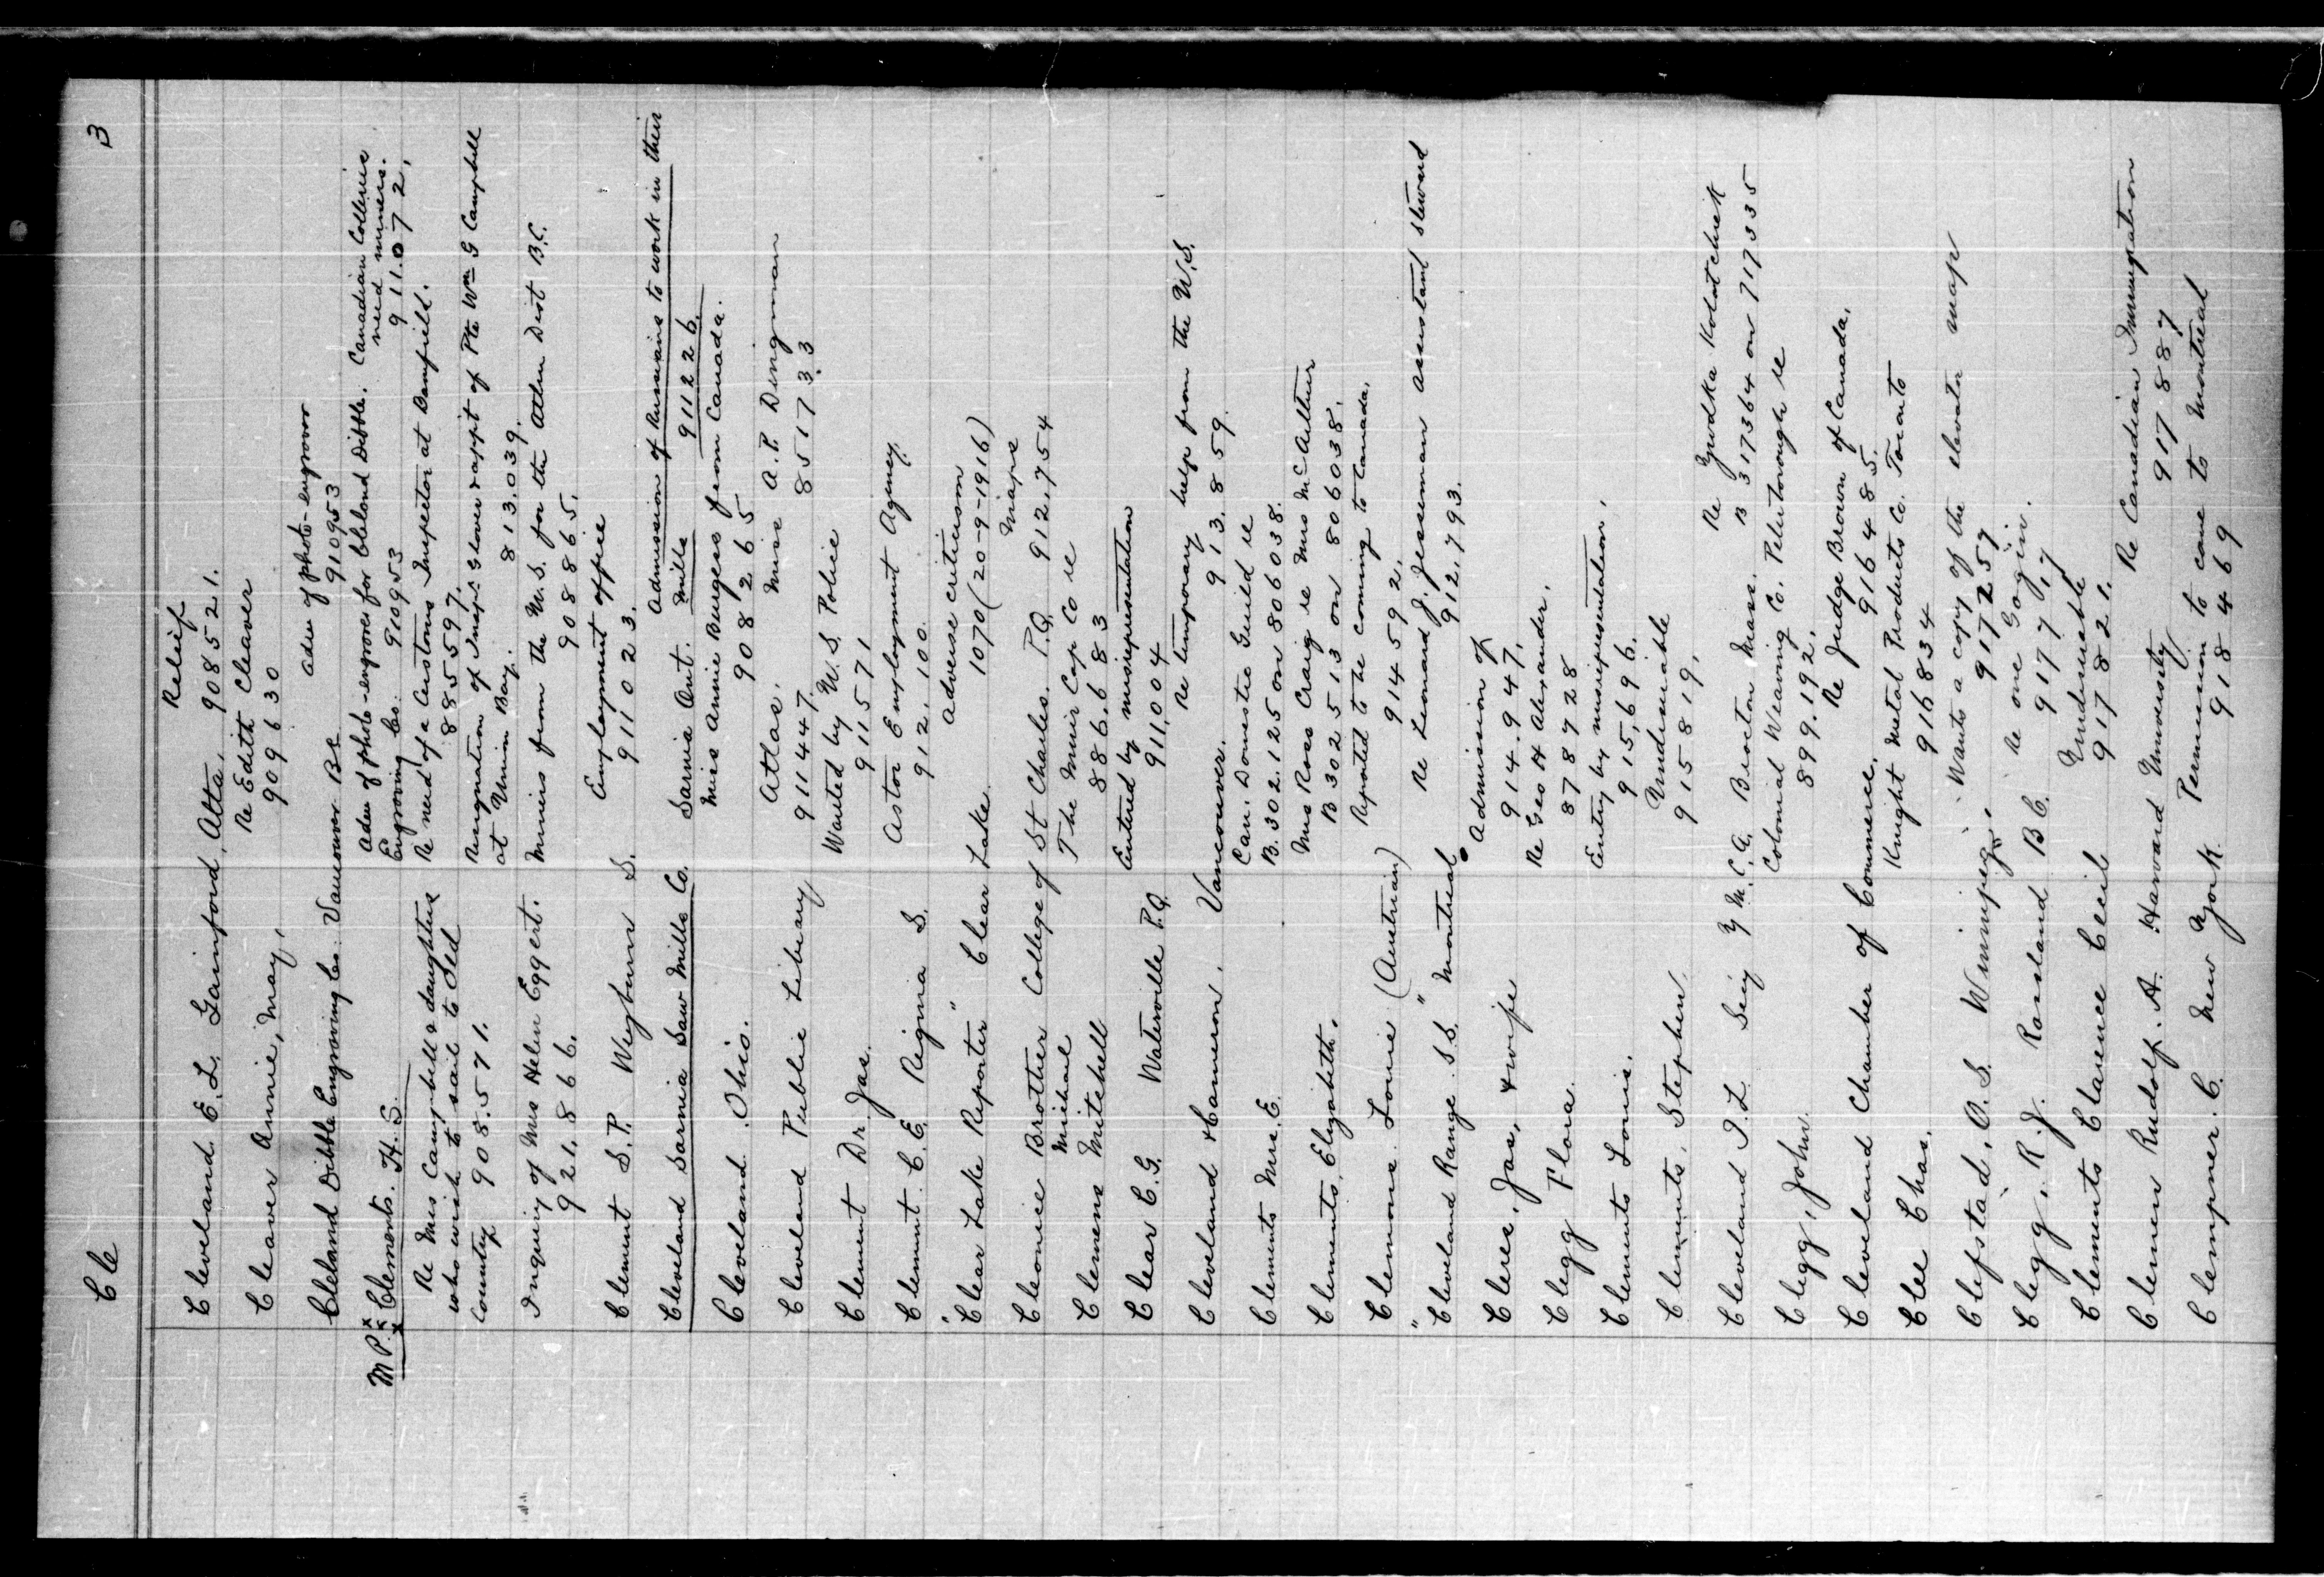 Cle
3
Cleveland E. L. Gainford, Alta,
Relief
908521.
Cleaver Annie, May,
Re Edith Cleaver
909630
Cleland Dibble Engraving Co. Vancouver BC
Adm of photo-engraver
910953
Adm of photo-engraver for Cleland Dibble Engraving Co. 910953
Canadian Collieries need miners.
911.072,
M P. Clements. H. S.
Re need of a Customs Inspector at Bamfield.
885597.
Re Mrs Campbell & daughters
who wish to sail to Old
Country 908.571.
Resignation of Inspr Glover & appt of Pte Wm G Campbell
at Union Bay. 813.039.
Inquiry of Mrs Helen Eggert.
921.866.
Miners from the U. S. for the Atlin Dist B.C.
908865.
Clement S. P. Weyburn S.
Employment office
911023.
Cleveland Sarnia Saw Mills Co. Sarnia Ont.
Admission of Russians to work in their
Mills 911226.
Cleveland. Ohio.
Miss Annie Burgess from Canada.
908265
Cleveland Public Library
Atlas.
911447.
Miss A. P. Dingman
85173.3
Clement Dr. Jas.
Wanted by U. S. Police
911571
Clement. C. E. Regina S.
Astor Employment Agency.
912.100.
"Clear Lake Reporter" Clear Lake.
Adverse criticism
1070 (20-9-1916)
Cleonice Brother College of St Charles. P. Q.
Michael
Maps
912.754
Clemens Mitchell
The Muir Cap Co re
886.683
Clear C. G. Waterville P.Q.
Entered by misrepresentation
911.004
Cleveland & Cameron. Vancouver.
Re temporary help from the U.S.
913.859.
Clements Mrs. E.
Can. Domestic Guild re
B.302.125 on 806038.
Clements, Elizabeth.
Mrs Ross Craig re Mrs McArthur
B 302513 on 806038.
Clemons. Louie (Austrian)
Reported to be coming to Canada.
914592.
"Cleveland Range. S.S." Montreal.
Re Leonard J. Jesseman assistant steward
912.793.
Cleres, Jas, & wife
Admission of
914.947.
Clegg Flora.
Re Geo H Alexander.
878728
Clements Louis.
Entry by misrepresentation.
915.696.
Clements, Stephen,
Undesirable
915819,
Cleveland I. L. Secy Y. M. C. A. Brockton Mass.
Re Yudka Kolotchuk
B 317364 on 717335
Clegg, John.
Colonial Weaving Co. Peterborough re
899.192.
Cleveland Chamber of Commerce.
Re Judge Brown of Canada.
916485.
Clee Chas.
Knight Metal Products Co. Toronto
916834
Clefstad, O. S. Winnipeg.
Wants a copy of the elevator map
917257
Clegg, R. J. Rossland B C.
Re one Gogin.
91777,7
Clements Clarence Cecil
Undesirable
917821.
Clemen Rudolf. A. Harvard University
Re Canadian Immigration
917887
Clempner. C. New York.
Permission to come to Montreal
918469